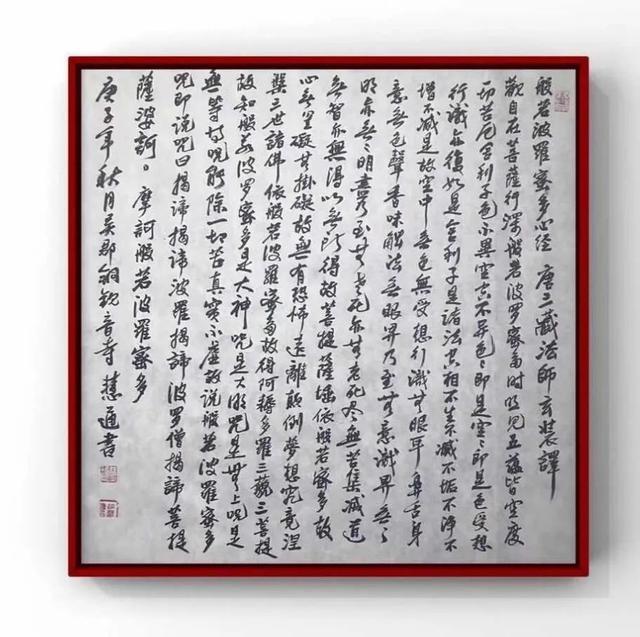 般若波羅蜜多心經 唐三藏法師玄奘譯
觀自在菩薩行深般若波羅蜜多時照見五蘊皆空度
一切苦厄舍利子色不異空空不异色色即是空空即是色受想
行識亦復如是舍利子是諸法空相不生不滅不垢不淨不
增不减是故空中無色無受想行識無眼耳鼻舌身
意無色聲香味觸法無眼界乃至無意識界無無
明亦無無明盡乃至無老死亦無老死盡無苦集滅道
無智亦無得以無所得故菩提薩埵依般若蜜多故
心無罣礙無掛礙故無有恐怖遠離顛倒夢想究竟涅
槃三世諸佛依般若波羅蜜多故得阿耨多羅三藐三菩提
故知般若波罗蜜多是大神咒是大明咒是無上咒是
無等等咒能除一切苦真實不虛故說般若波羅蜜多
咒即說咒曰揭諦揭諦波羅揭諦波罗僧揭諦菩提
薩婆訶。摩訶般若波羅蜜多
庚子年秋月吴郡銅音寺慧通書